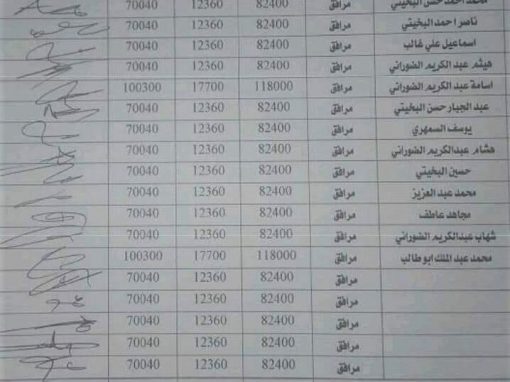 محمد احمد حسن البخيتي مرافق 82400 12360 70040
ناصر احمد البخيتي مرافق 82400 12360 70040
اسماعيل علي غالب مرافق 82400 12360 70040
هيثم عبد الكريم الضوراني مرافق 82400 12360 70040
اسامة عبد الكريم الضوراني مرافق 118000 17700 100300
عبد الجبار حسن البخيتي مرافق 82400 12360 70040
يوسف السمهري مرافق 82400 12360 70040
هشام عبدالكريم الضوراني مرافق 82400 12360 70040
حسين البخيتي مرافق 82400 12360 70040
محمد عبد العزيز مرافق 82400 12360 70040
مجاهد عاطف مرافق 82400 12360 70040
شهاب عبدالكريم الضوراني مرافق 82400 12360 70040
محمد عبد الملك ابو طالب مرافق 118000 17700 100300
مرافق 82400 12360 70040
مرافق 82400 12360 70040
مرافق 82400 12360 70040
مرافق 82400 12360 70040
مرافق 82400 12360 70040